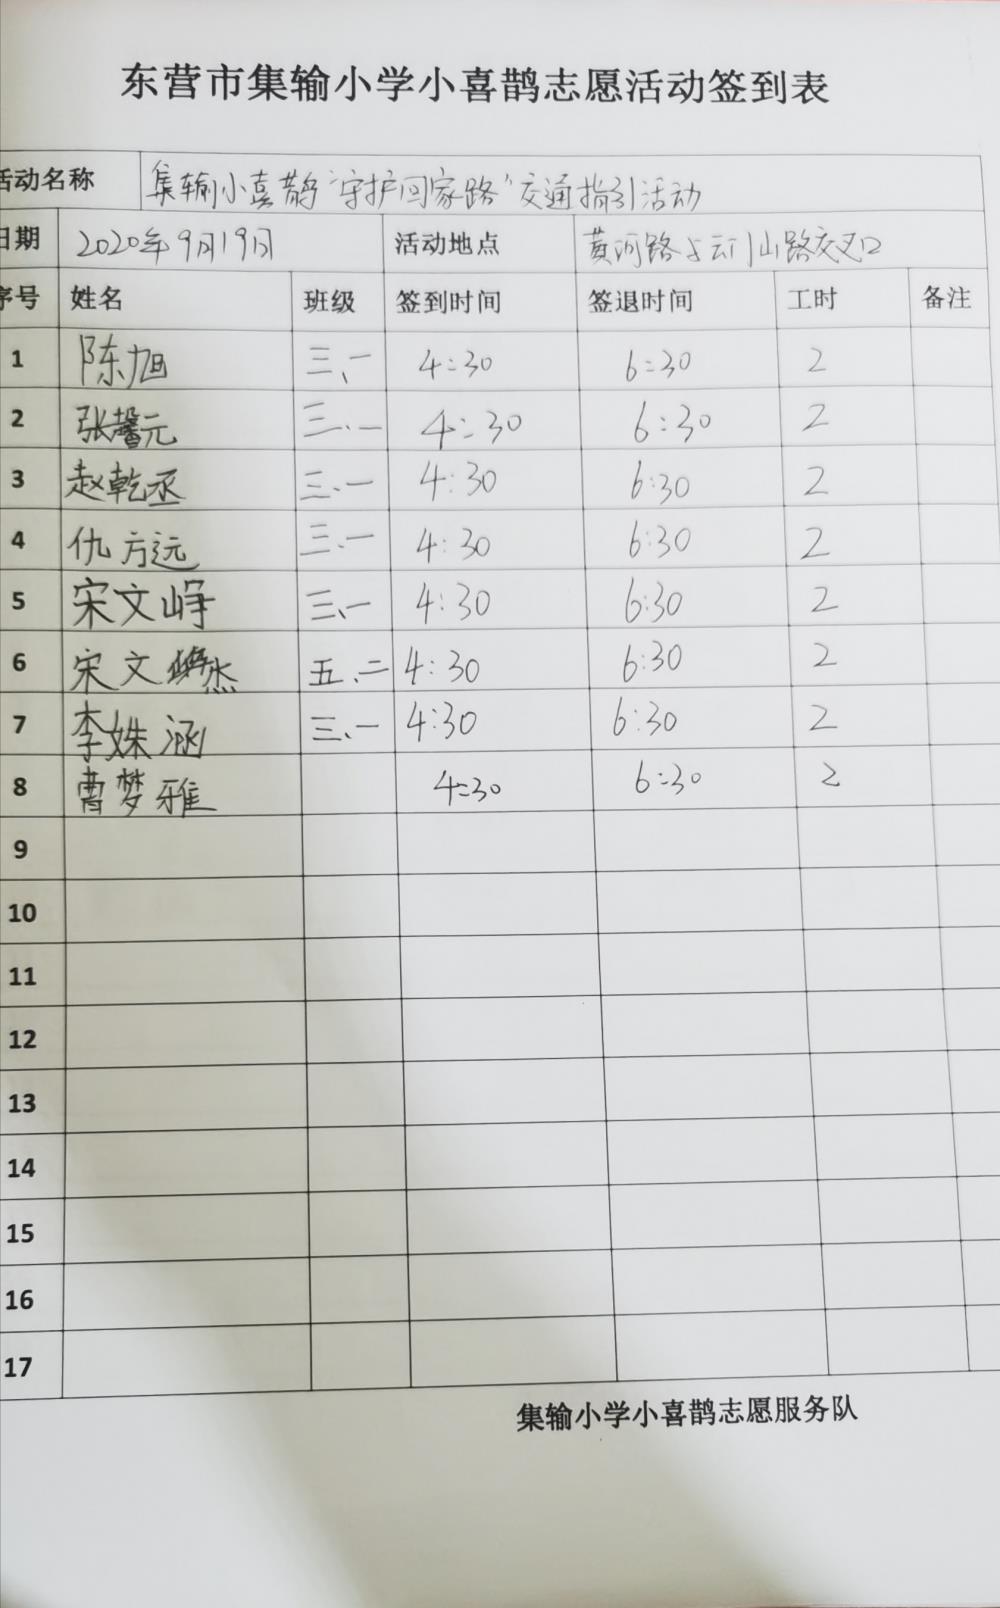 东营市集输小学小喜鹊志愿活动签到表
活动名称 集输小喜鹊“守护回家路”交通指引活动
日期 2020年9月19日 活动地点 黄河路与云门山路交叉口
序号 姓名 班级 签到时间 签退时间 工时 备注
1 陈旭 三、一 4:30 6:30 2
2 张馨元 三、一 4:30 6:30 2
3 赵乾丞 三、一 4:30 6:30 2
4 仇方远 三、一 4:30 6:30 2
5 宋文峥 三、一 4:30 6:30 2
6 宋文杰 五、二 4:30 6:30 2
7 李姝涵 三、一 4:30 6:30 2
8 曹梦雅 4:30 6:30 2
9
10
11
12
13
14
15
16
17
集输小学小喜鹊志愿服务队